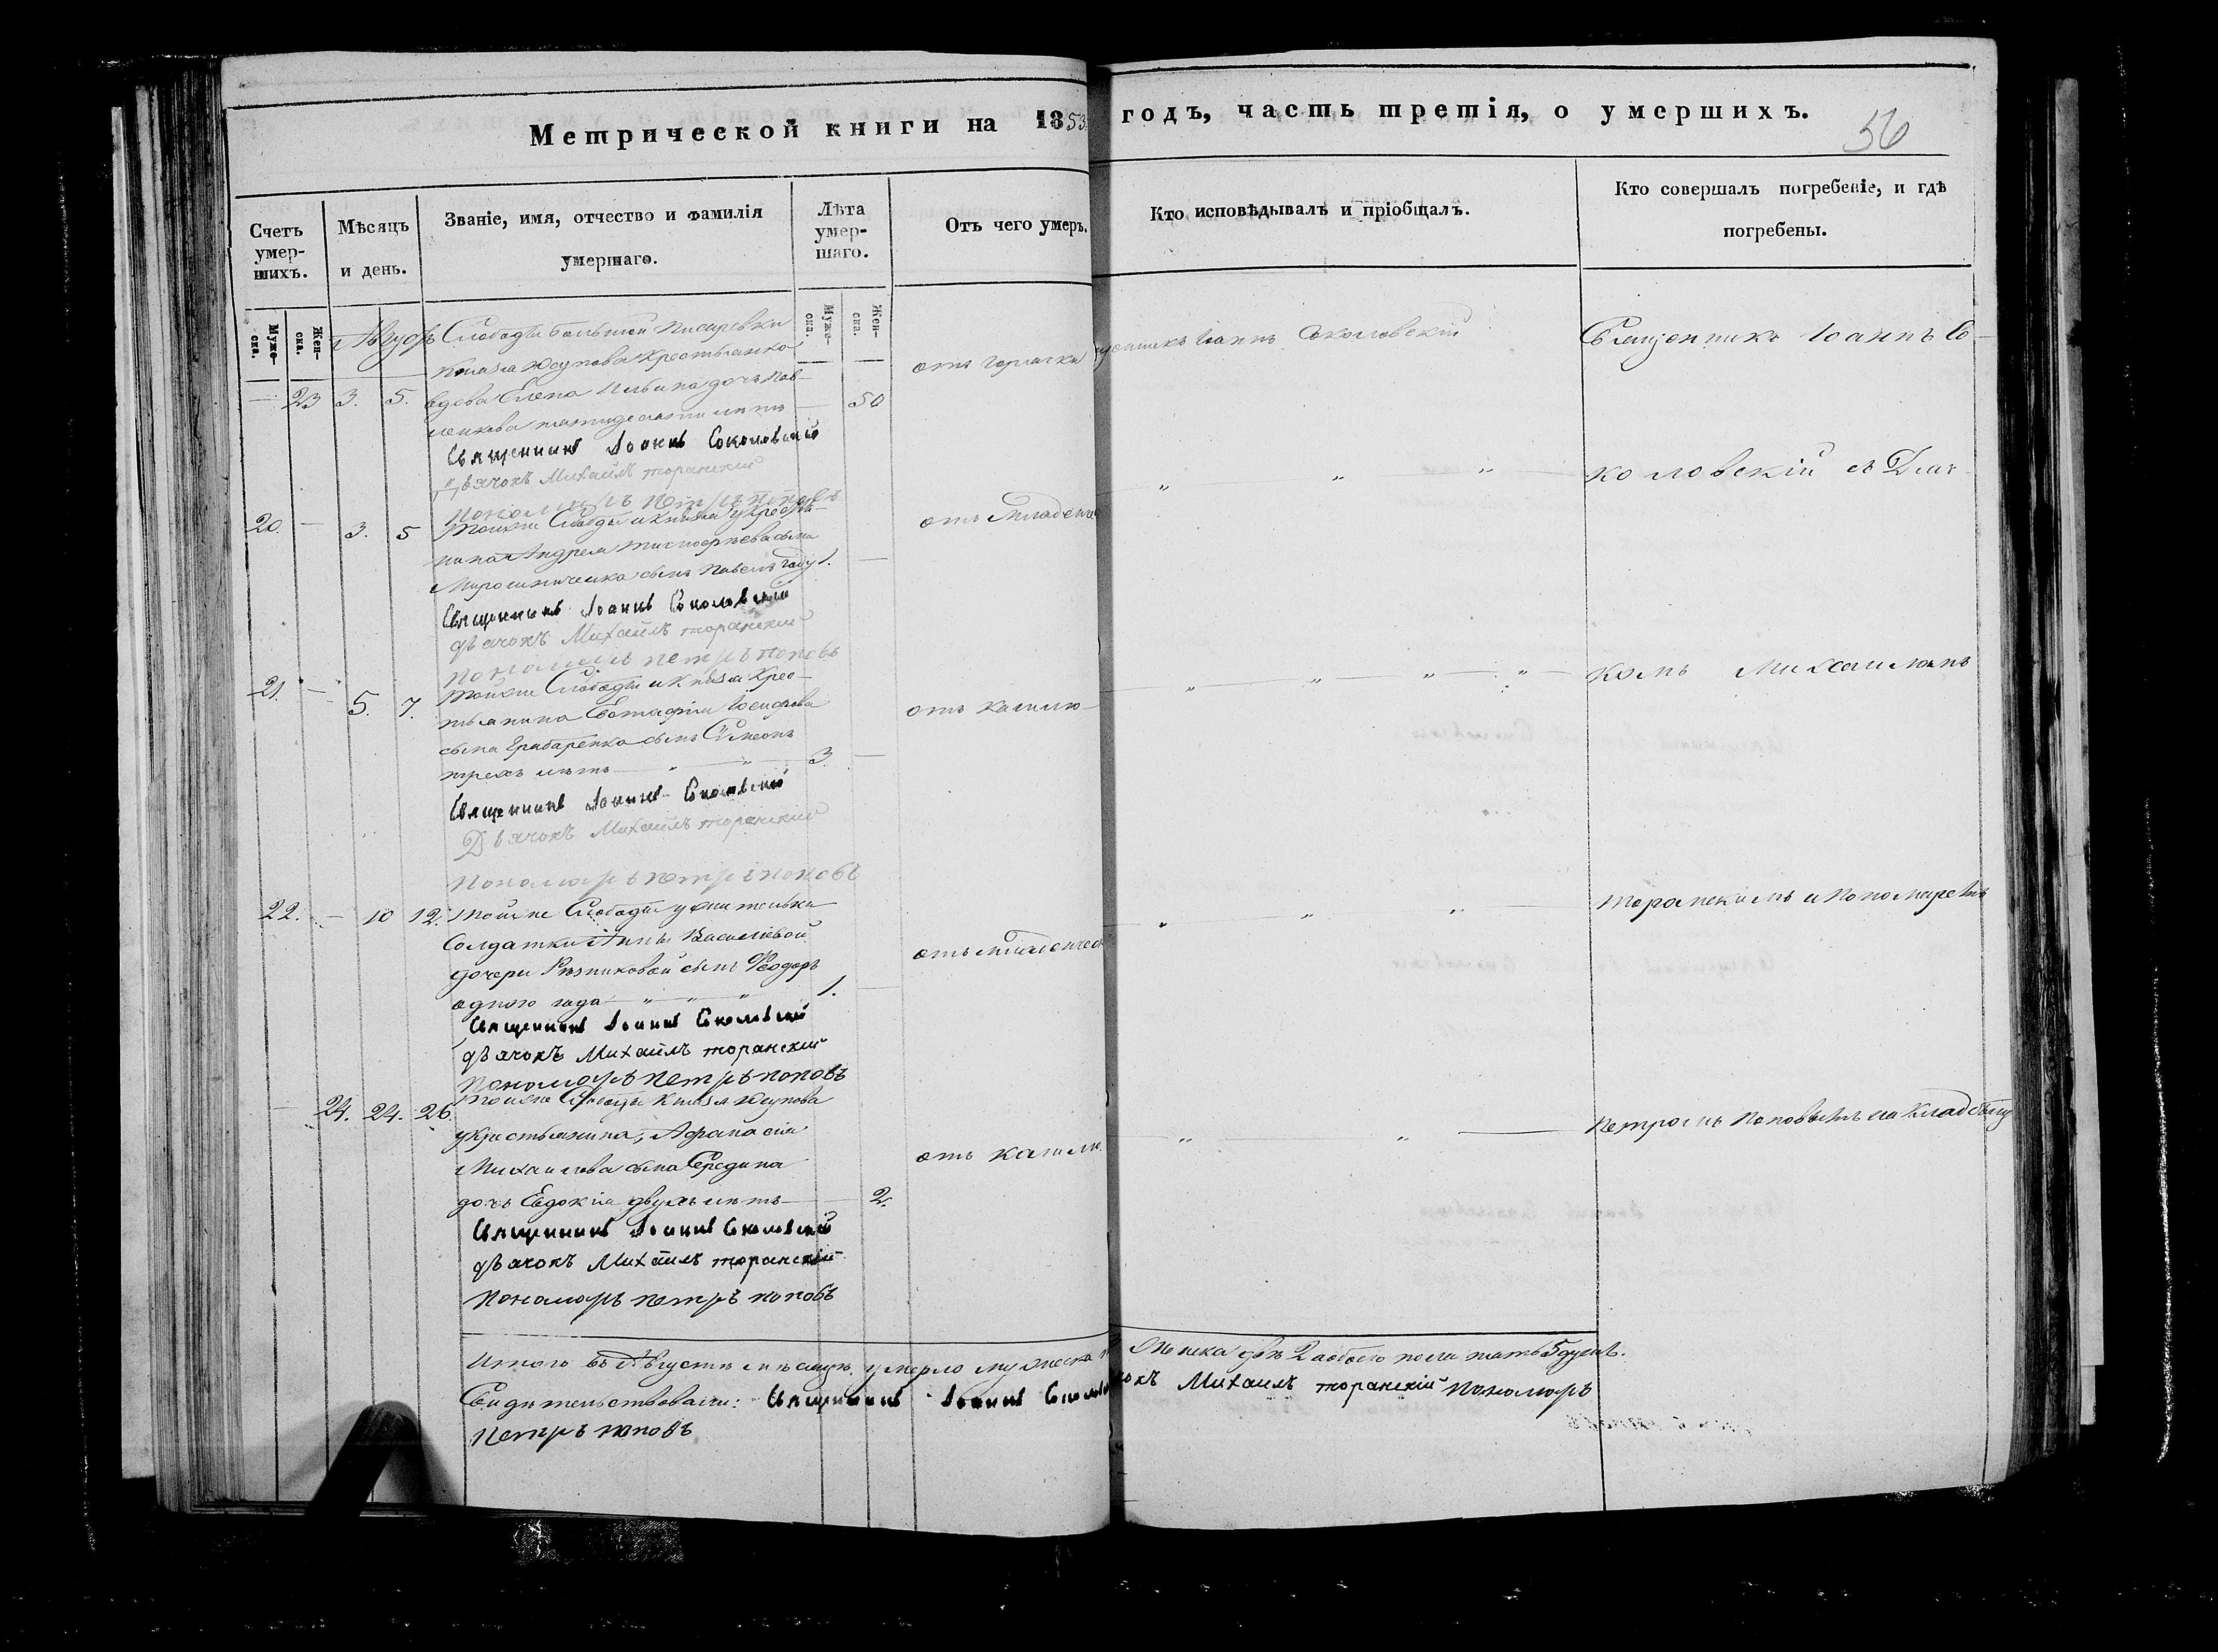 Метрической книги на 1853 годъ, часть третія, о умершихъ.
56
Счетъ умер-шихъ.
Мѣсяцъ и день.
Званіе, имя, отчество и фамилія умершаго.
Лѣта умер-шаго.
Отъ чего умеръ.
Кто исповѣдывалъ и пріобщалъ.
Кто совершалъ погребеніе, и гдѣ погребены.
Муже-ска.
Жен-ска.
Муже-ска.
Жен-ска.
Августъ Слободы большой Писаревки
Князя Юсупова Крестьянка
23 3. 5. вдова Елена Ильина дочь Пав-
ленкова пятидесяти лѣтъ 50
отъ горячки
Іоаннъ Соколовскій
Священникъ Іоаннъ Со-
Священникъ Іоаннъ Соколовскій
Дьячокъ Михаилъ торанскій
пономарь петръ поповъ
20. 3. 5 тойже Слободы и Князя у крестья-
нина Андрея
Мирошниченка сынъ Павелъ году 1.
отъ младенчес
коловскій съ Дьяч
Священникъ Іоаннъ Соколовскій
дьячокъ Михаилъ торанскій
пономарь петръ поповъ
21. 5. 7. тойже Слободы и Князя Крес-
тьянина Евстафія Іосифова
сына Грабаренка сынъ Симеонъ
трехъ лѣтъ 3.
отъ кашлю
комъ Михаиломъ
Священникъ Іоаннъ Соколовскій
Дьячокъ Михаилъ торанскій
пономарь петръ поповъ
22. 10 12. тойже Слободы у
Солдатки Анны Василіевой
дочери Рѣзниковой сынъ Феодоръ
одного года 1.
отъ младенчес
торанскимъ и пономаремъ
Священникъ Іоаннъ Соколовскій
дьячокъ Михаилъ торанскій
пономарь петръ поповъ
24. 24. 26. тойже Слободы Князя Юсупова
у крестьянина Афанасія
Михаилова сына Середина
дочь Евдокія двухъ лѣтъ 2.
отъ кашлю
петромъ поповымъ на кладбищу
Священникъ Іоаннъ Соколовскій
дьячокъ Михаилъ торанскій
пономарь петръ поповъ
Итого въ Августѣ мѣсяцѣ умерло мужеска женска двѣ 2 а обоего пола пять 5 душъ.
Свидѣтельствовали: Священникъ Іоаннъ Михаилъ торанскій пономарь
петръ поповъ